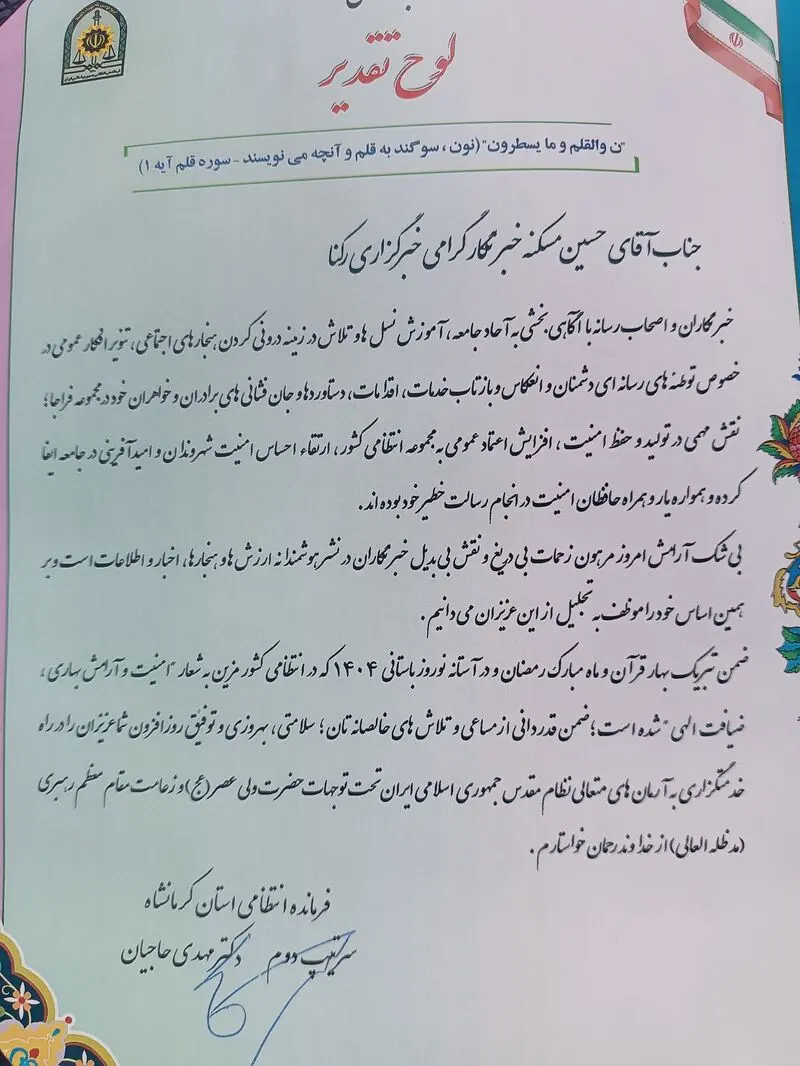 لوح تقدیر
"ن والقلم و ما یسطرون" (نون ، سوگند به قلم و آنچه می نویسند - سوره قلم آیه ۱)
جناب آقای حسین مسکنه خبرنگار گرامی خبرگزاری رکنا
خبرنگاران و اصحاب رسانه با آگاهی بخشی به آحاد جامعه ، آموزش نسل ها و تلاش در زمینه درونی کردن هنجارهای اجتماعی ، تنویر افکار عمومی در
خصوص توطئه های رسانه ای دشمنان و انعکاس و بازتاب خدمات، اقدامات، دستاوردها و جان فشانی های برادران و خواهران خود در مجموعه فراجا؛
نقش مهمی در تولید و حفظ امنیت ، افزایش اعتماد عمومی به مجموعه انتظامی کشور ، ارتقاء احساس امنیت شهروندان و امیدآفرینی در جامعه ایفا
کرده و همواره یار و همراه حافظان امنیت در انجام رسالت خطیر خود بوده اند .
بی شک آرامش امروز مرهون زحمات بی دریغ و نقش بی بدیل خبرنگاران در نشر هوشمندانه ارزش ها و هنجارها، اخبار و اطلاعات است و بر
همین اساس خود را موظف به تجلیل از این عزیزان می دانیم .
ضمن تبریک بهار قرآن و ماه مبارک رمضان و در آستانه نوروز باستانی ۱۴۰۴ که در انتظامی کشور مزین به شعار "امنیت و آرامش بهاری ،
ضیافت الهی" شده است ؛ ضمن قدردانی از مساعی و تلاش های خالصانه تان ؛ سلامتی ، بهروزی و توفیق روزافزون شما عزیزان را در راه
خدمتگزاری به آرمان های متعالی نظام مقدس جمهوری اسلامی ایران تحت توجهات حضرت ولی عصر (عج) و زعامت مقام معظم رهبری
(مدظله العالی) از خداوند رحمان خواستارم .
فرمانده انتظامی استان کرمانشاه
سرتیپ دوم دکتر مهدی حاجیان